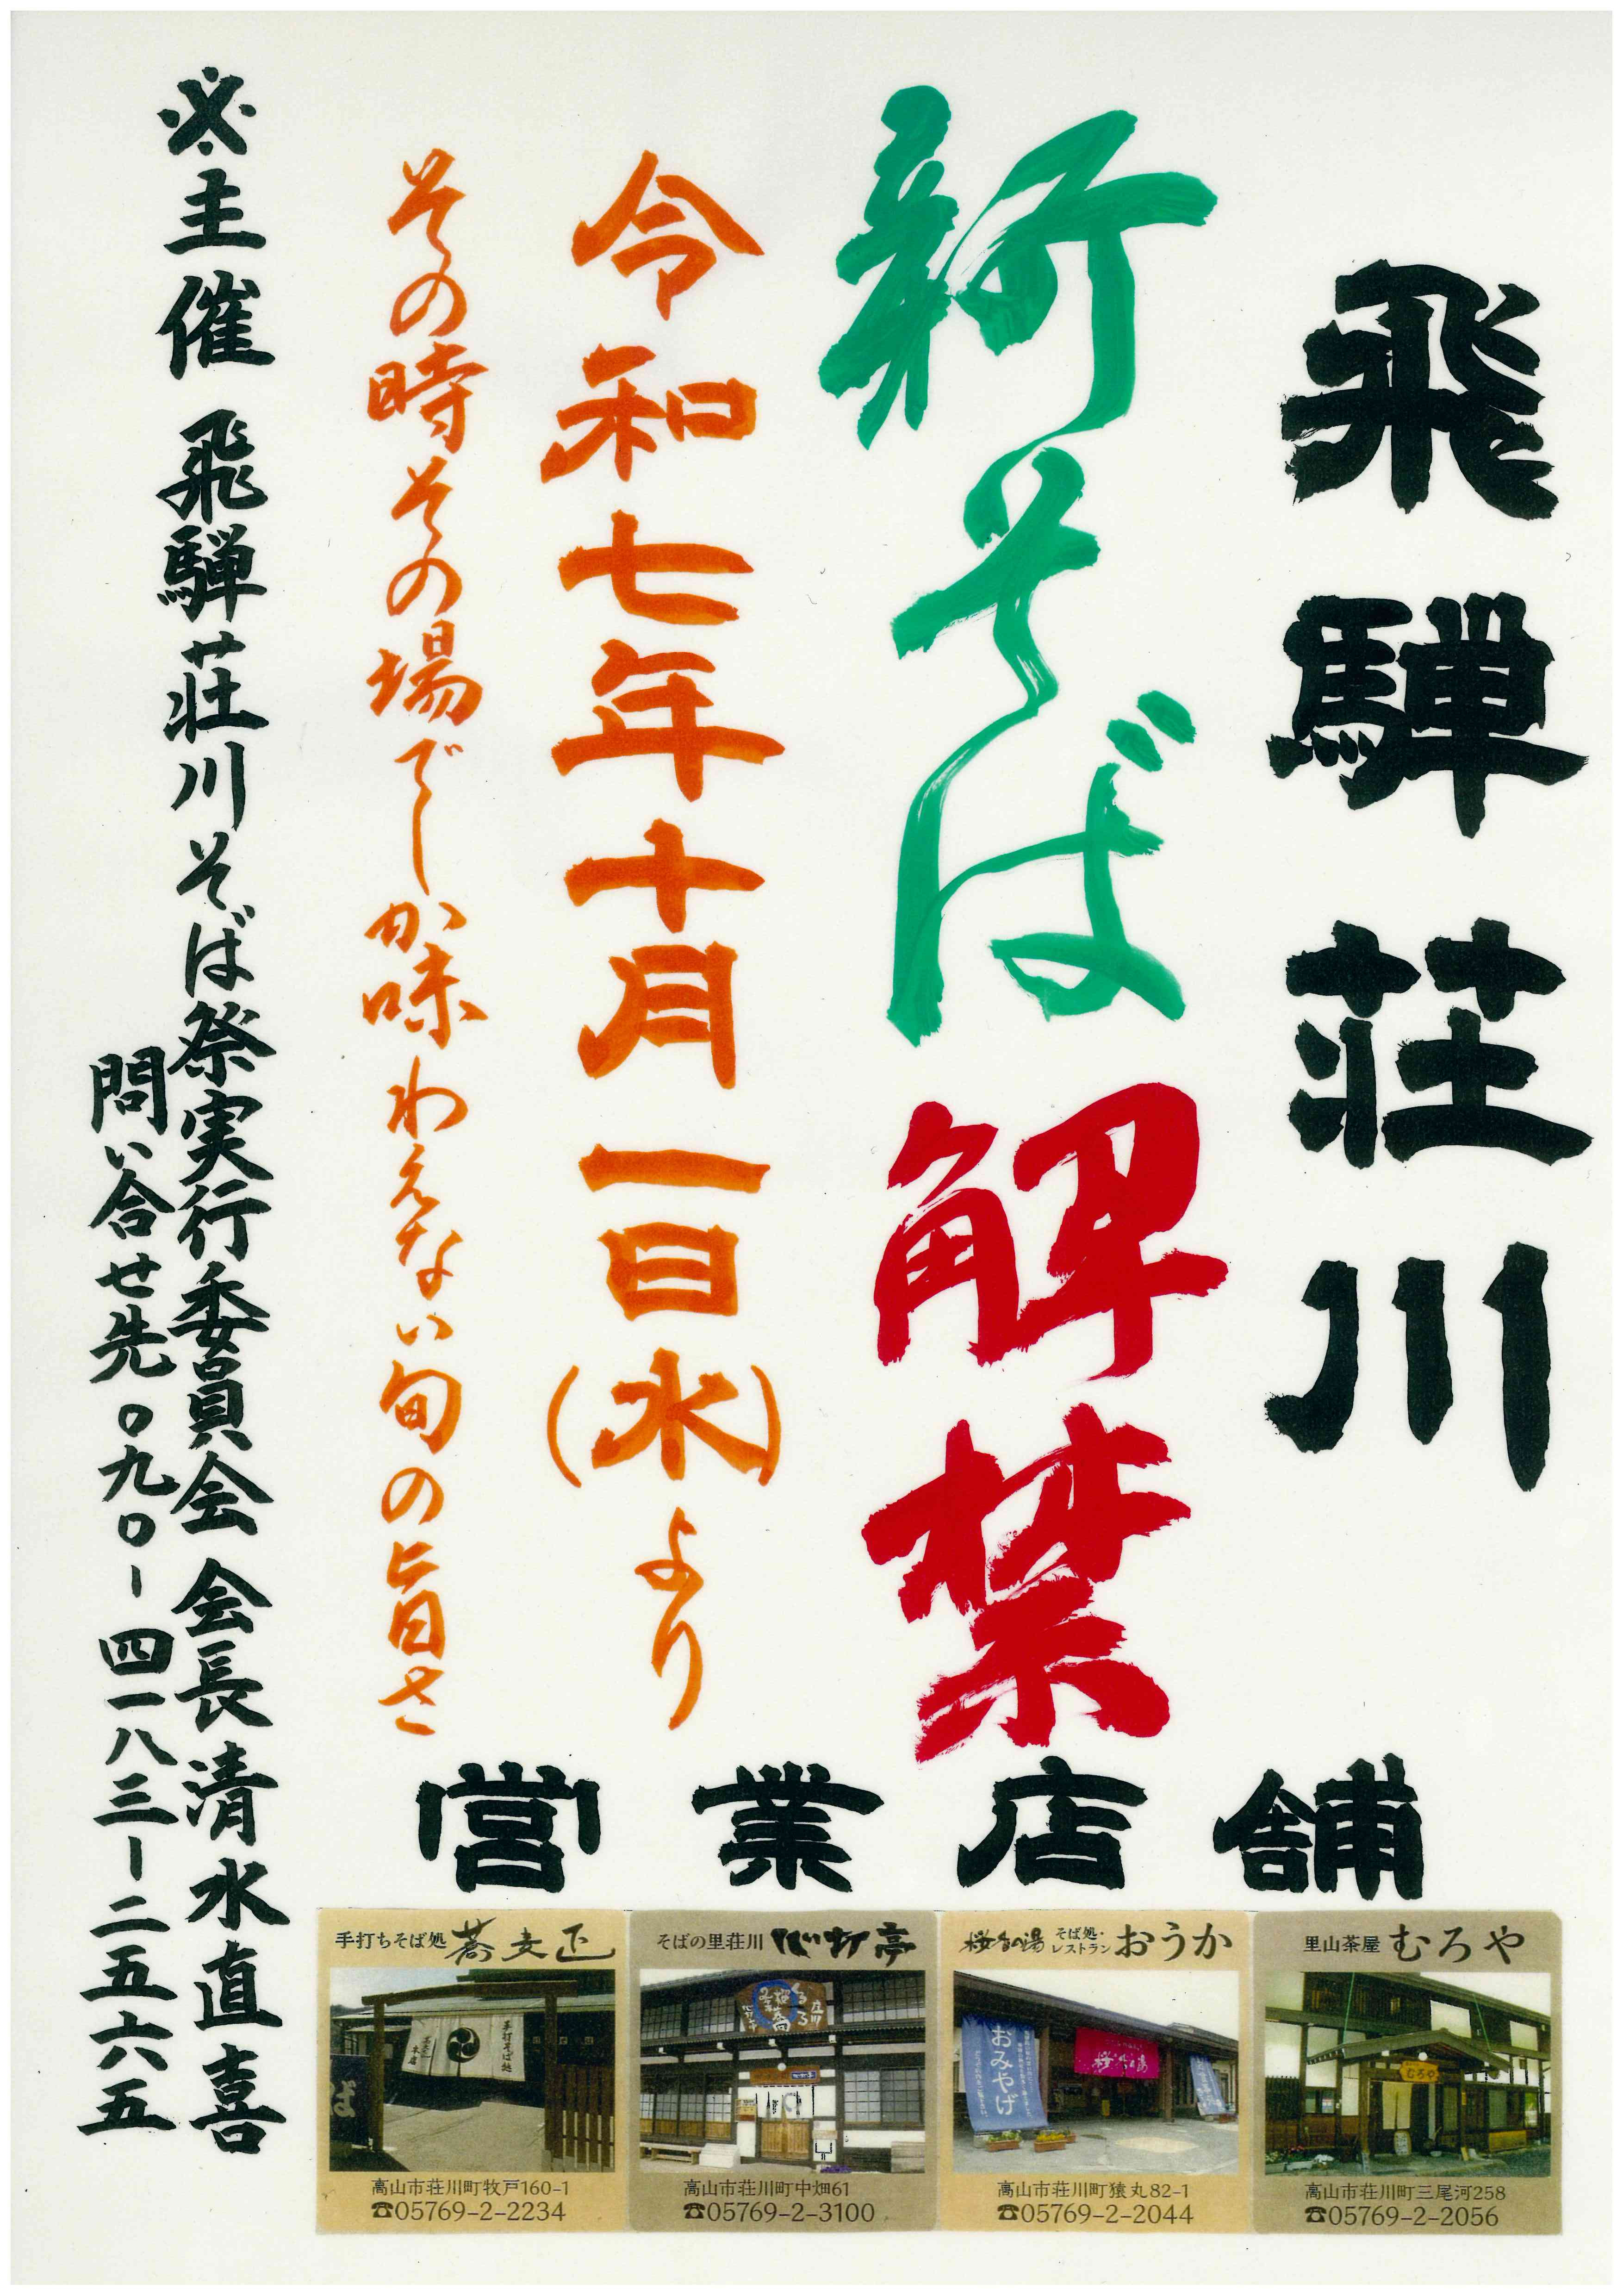 飛騨荘川
新そば解禁
令和七年十月一日(水)より
その時その場でしか味わえない旬の旨さ
※主催 飛騨荘川そば祭実行委員会 会長 清水直喜
問い合せ先 〇九〇-四一八三-二五六五
営業店舗
手打ちそば処 蕎麦正
手打そば処
高山市荘川町牧戸160-1
☎05769-2-2234
そばの里荘川 心打亭
高山市荘川町中畑61
☎05769-2-3100
桜香の湯 そば処・レストラン おうか
おみやげ
桜香の湯
高山市荘川町猿丸82-1
☎05769-2-2044
里山茶屋 むろや
むろや
高山市荘川町三尾河258
☎05769-2-2056